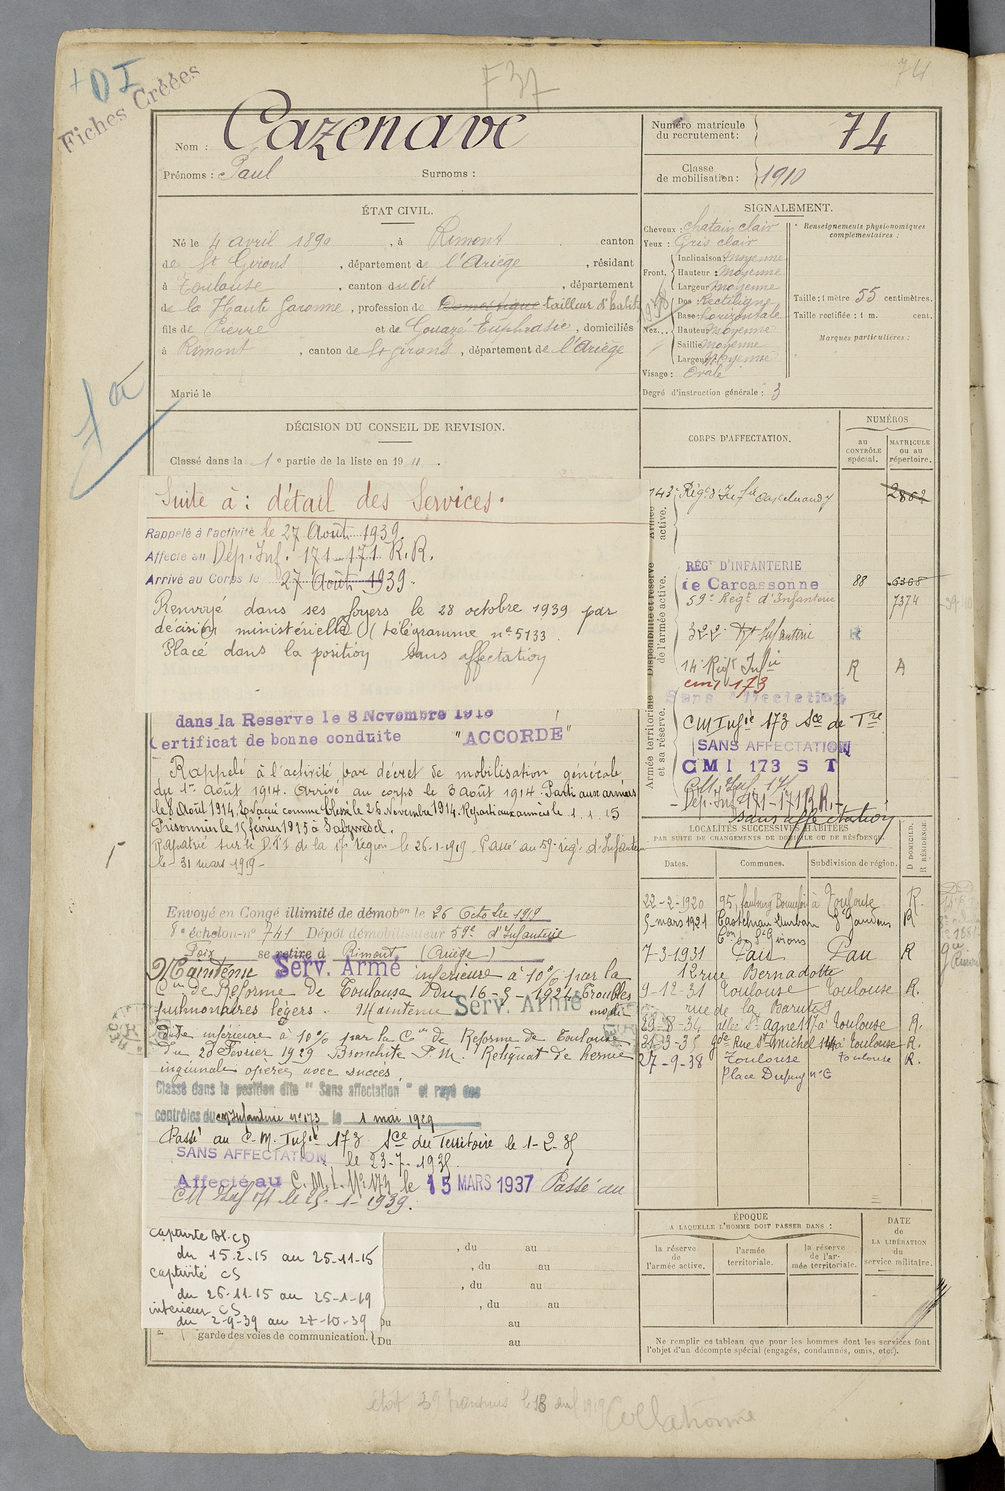 + D I
Fiches Créées
F37
74
Nom : Cazenave
Prénoms : Paul Surnoms :
Numéro matricule du recrutement : 74
Classe de mobilisation : 1910
ÉTAT CIVIL.
Né le 4 avril 1890, à Rimont canton
de St Girons, département de l'Ariège, résidant
à Toulouse, canton du dit, département
de la Haute Garonne, profession de Domestique tailleur d'habits
fils de Pierre et de Gouazé Euphrasie, domiciliés
à Rimont, canton de St Girons, département de l'Ariège
Marié le
SIGNALEMENT.
Cheveux : chatain clair
Yeux : Gris clair
Front. Inclinaison : moyenne
Hauteur : moyenne
Largeur moyenne
Nez. Dos : Rectiligne
Base : horizontale
Hauteur moyenne
Saillie moyenne
Largeur moyenne
Visage : ovale
Degré d'instruction générale : 3
Renseignements physionomiques complémentaires :
Taille : 1 mètre 55 centimètres.
Taille rectifiée : 1 m. cent.
Marques particulières :
7 a
DÉCISION DU CONSEIL DE REVISION.
Classé dans la 1e partie de la liste en 1911.
Suite à : détail des Services.
Rappelé à l'activité le 27 Août 1939.
Affecté au Dép. Inf. 171-171 R.R.
Arrivé au Corps le 27 Août 1939.
Renvoyé dans ses foyers le 28 octobre 1939 par
décision ministérielle (télégramme n° 5133
Placé dans la position sans affectation
dans la Reserve le 8 Novembre 1913
Certificat de bonne conduite "ACCORDÉ"
Rappelé à l'activité par décret de mobilisation générale
du 1er Août 1914. Arrivé au corps le 3 août 1914. Parti aux armées
le 8 Août 1914. Evacué comme blessé le 26 Novembre 1914. Reparti aux armées le 1.1.15
Prisonnier le 15 février 1915 à Salzwedel.
Rapatrié sur le D.T.I de la 17e région le 26-1-1919. Passé au 59e rég. d'Infanterie
le 31 mars 1919-
Envoyé en Congé illimité de démobon le 26 Octobre 1919
8e échelon-n° 741 Dépôt démobilisateur 59e d'Infanterie
Foix se retire à Rimont (Ariège)
Maintenu Serv. Armé inférieure à 10% par la
Con de Réforme de Toulouse du 16-5-1924 Troubles
pulmonaires légers. Maintenu Serv. Armé
inférieure à 10% par la Con de Réforme de Toulouse
du 20 Février 1929 Bronchite P.M. Reliquat de hernie
inguinale opérée avec succès
Classé dans la position dite "Sans affectation" et rayé des
contrôles du cm Infanterie n° 173 le 1 mai 1929
Passé au C.M. Infie 173 Sce du Territoire le 1-2-35
SANS AFFECTATION le 23-7-1935.
Affecté au C.M.I. N° 173 le 15 MARS 1937 Passé au
CM Inf 171 le 15-1-1939.
captivité
du 15.2.15 au 25-11-15
captivité CS
du 26-11-15 au 25-1-19
intérieur CS
du 2-9-39 au 27-10-39
, du au
, du au
, du au
, du au
Du au
garde des voies de communication. Du au
CORPS D'AFFECTATION.
NUMÉROS
au CONTRÔLE spécial.
MATRICULE ou au répertoire.
Armée active.
143e Régt d'Infie Castelnaudary 2862
Disponibilité et réserve de l'armée active.
RÉGt D'INFANTERIE
de Carcassonne 88 6368
59e Régt d'Infanterie 7374
322e Rt Infanterie R
14e Régt Infie R A
cmi 173
Sans Affectation
Armée territoriale et sa réserve.
CM Infie 173 Sce de Tre
SANS AFFECTATION
CMI 173 S T
CM. Inf. 171
Dép. Inf. 171-171 R.R.
sans affectation
LOCALITÉS SUCCESSIVES HABITÉES
PAR SUITE DE CHANGEMENTS DE DOMICILE OU DE RÉSIDENCE.
Dates. Communes. Subdivision de région. D DOMICILE. R RÉSIDENCE
22-2-1920 95, faubourg Bonnefoi à Toulouse R.
5-mars 1921 Castelnau Durban St Gaudens R
Con St Girons
7-3-1931 Pau Pau R
12 rue Bernadotte
9-12-31 Toulouse Toulouse R.
rue de la
23-8-34 allée St Agne 117 à Toulouse R.
21-3-35 gde Rue St Michel à Toulouse R.
27-9-38 Toulouse Toulouse R.
Place Dupuy n° 6
ÉPOQUE
A LAQUELLE L'HOMME DOIT PASSER DANS :
la réserve de l'armée active.
l'armée territoriale.
la réserve de l'armée territoriale.
DATE de LA LIBÉRATION du service militaire.
Ne remplir ce tableau que pour les hommes dont les services font
l'objet d'un décompte spécial (engagés, condamnés, omis, etc.).